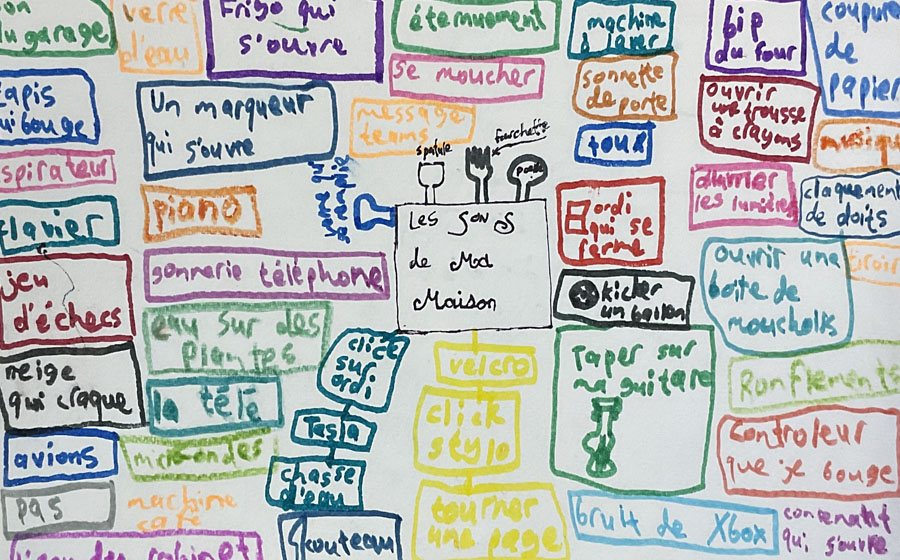 du garage
verre
d'eau
Frigo qui
s'ouvre
éternuement
machine
à laver
bip
du four
coupure
de
papier
se moucher
sonnette
de porte
ouvrir
une trousse
à crayons
tapis
qui bouge
Un marqueur
qui s'ouvre
message
teams
spatule
fourchette
toux
musique
spirateur
piano
allumer
les lumières
claquement
de doits
clavier
Les sons
de Ma
Maison
ordi
qui se
ferme
jeu
d'échecs
sonnerie téléphone
kicker
un ballon
ouvrir une
boite de
mouchoirs
eau sur des
plantes
click
sur
ordi
velcro
Taper sur
ma guitare
Ronflements
neige
qui craque
la télé
click
stylo
Tesla
controleur
que je bouge
avions
micro-ondes
chasse
d'eau
pas
machine
café
tourner
une page
bruit de Xbox
qui s'ouvre
couteau